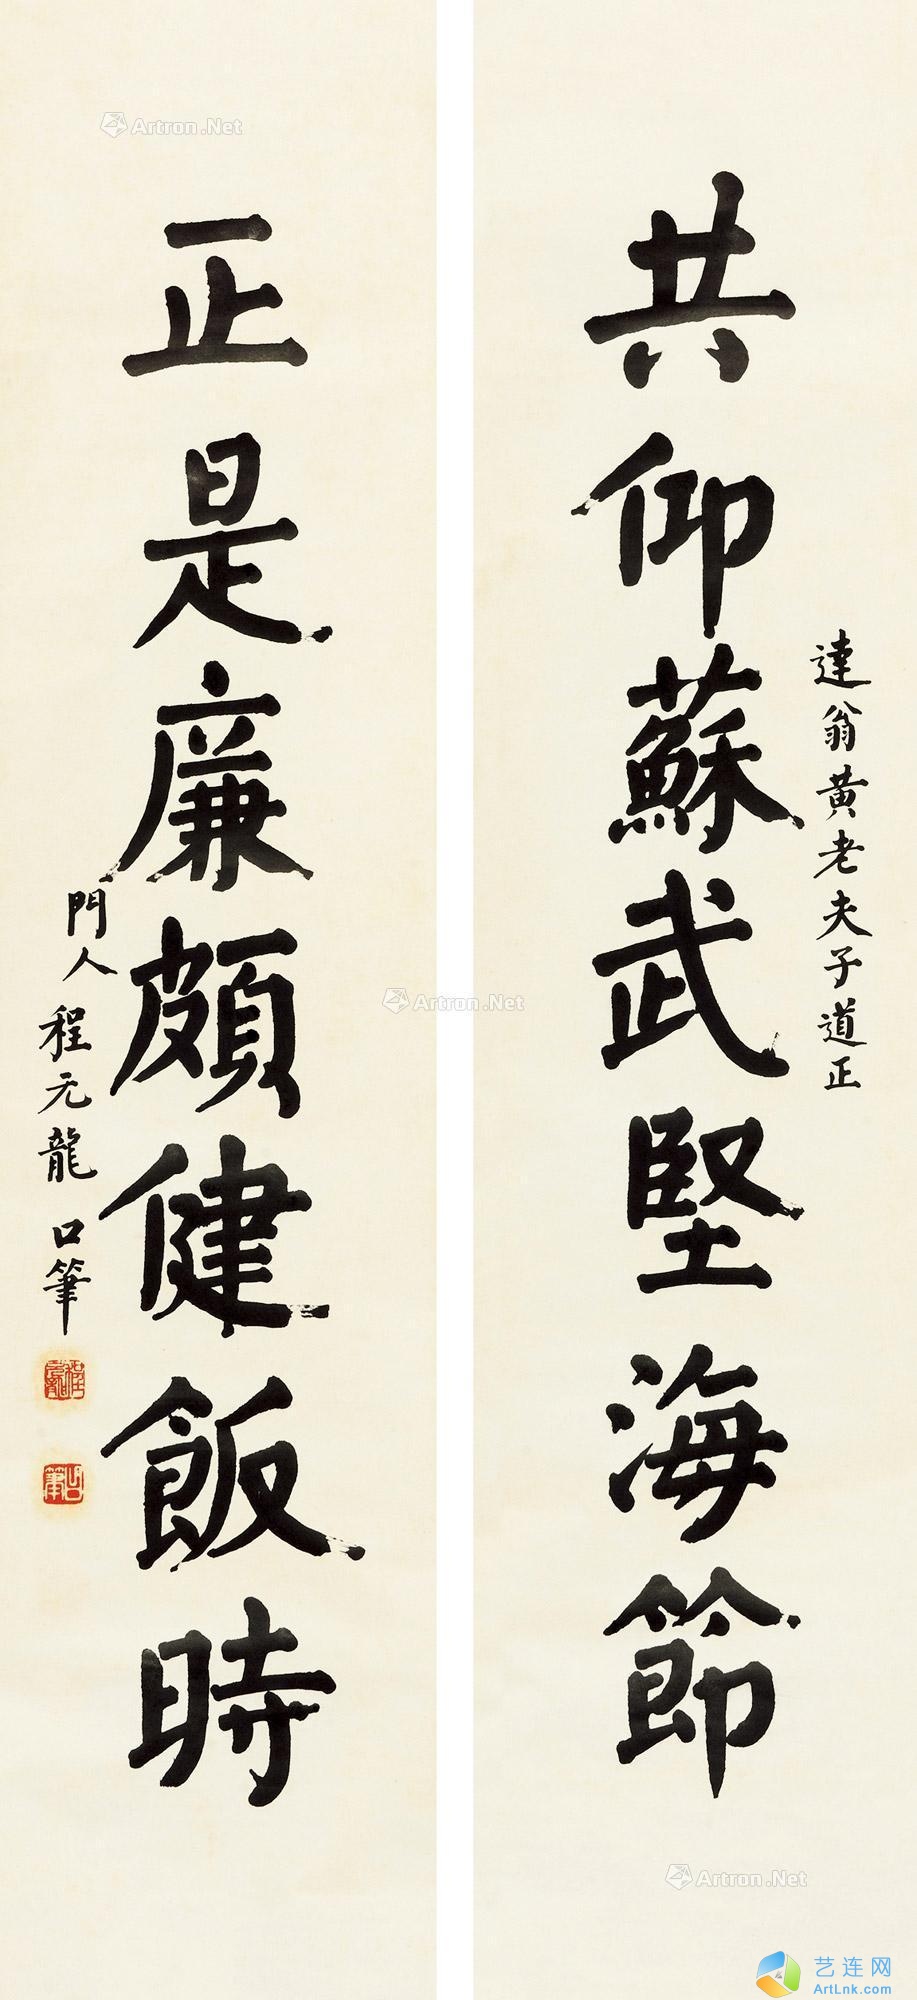 達翁黄老夫子道正
共仰蘇武堅海節
正是廉頗健飯時
門人程元龍口筆
Artron.Net
Artron.Net
Artron.Net
艺连网
ArtLnk.com